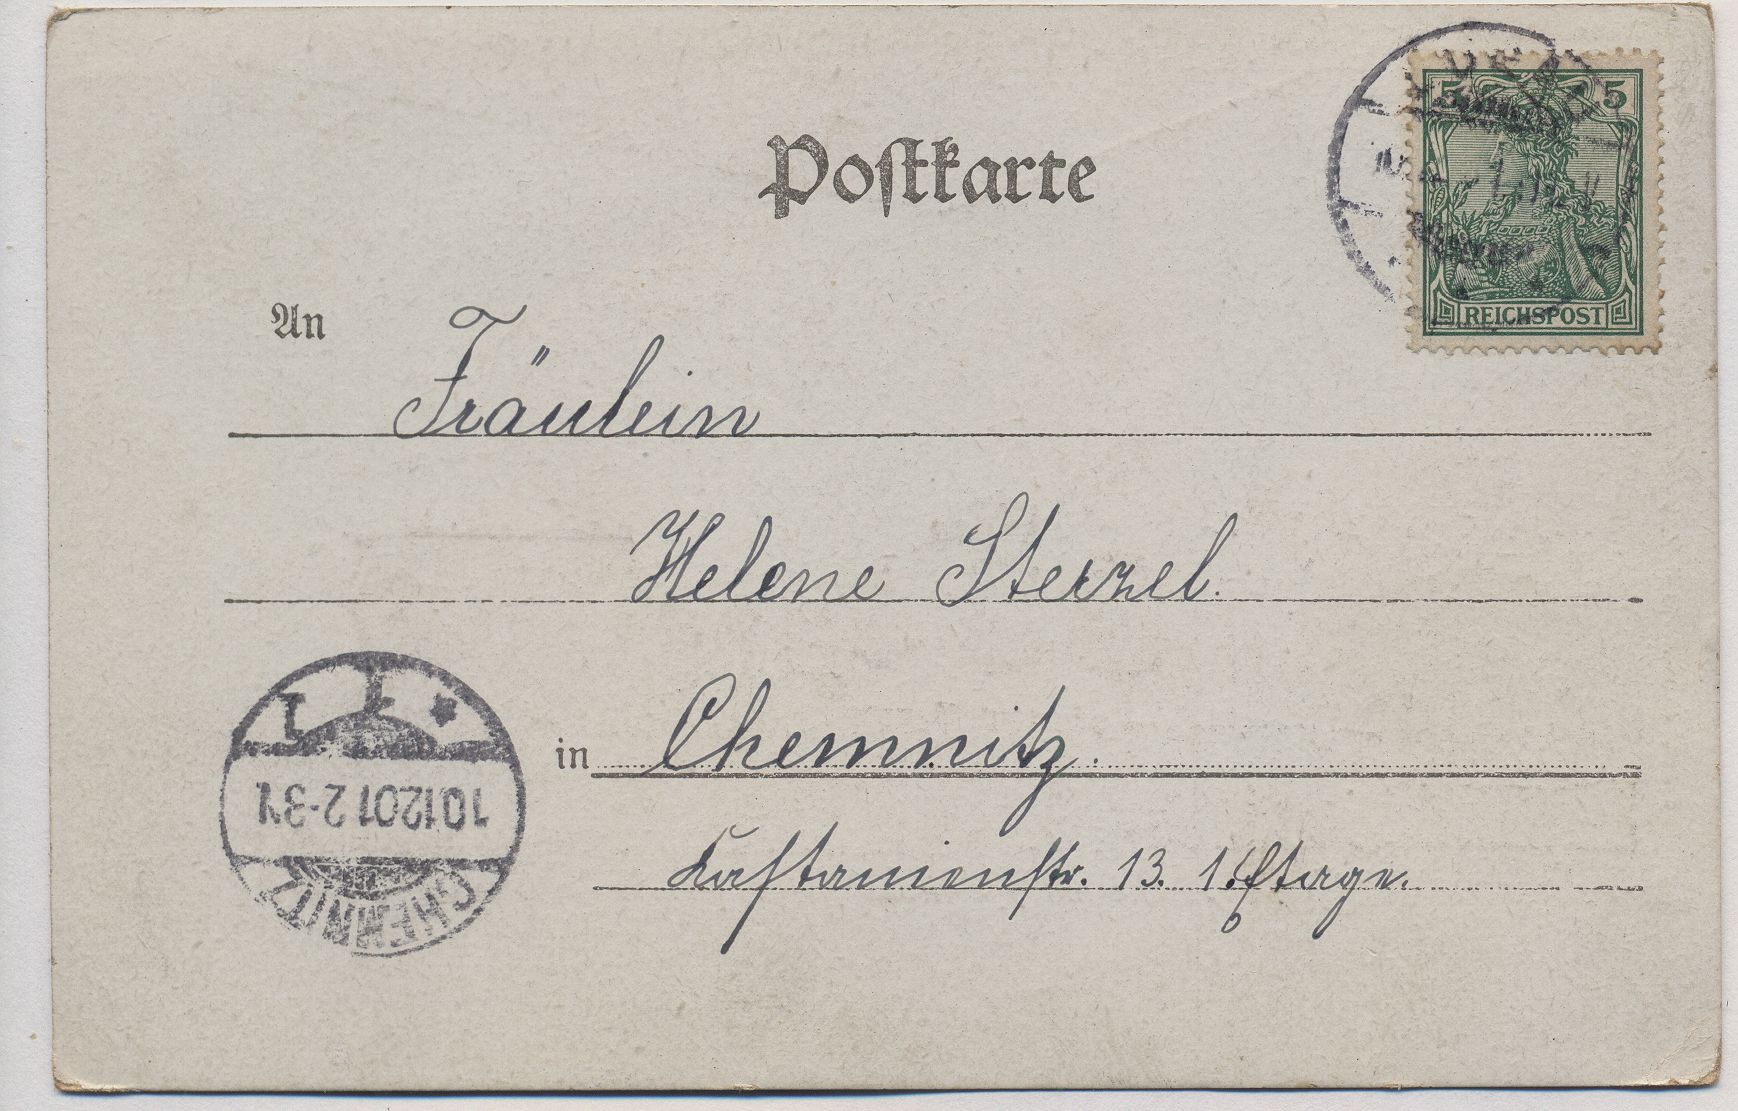 Postkarte
5 5
REICHSPOST
An Fräulein
Helene Sterzel.
in Chemnitz.
Kastanienstr. 13. 1. Etage.
CHEMNITZ
10.12.01 2-3 N.
* 1